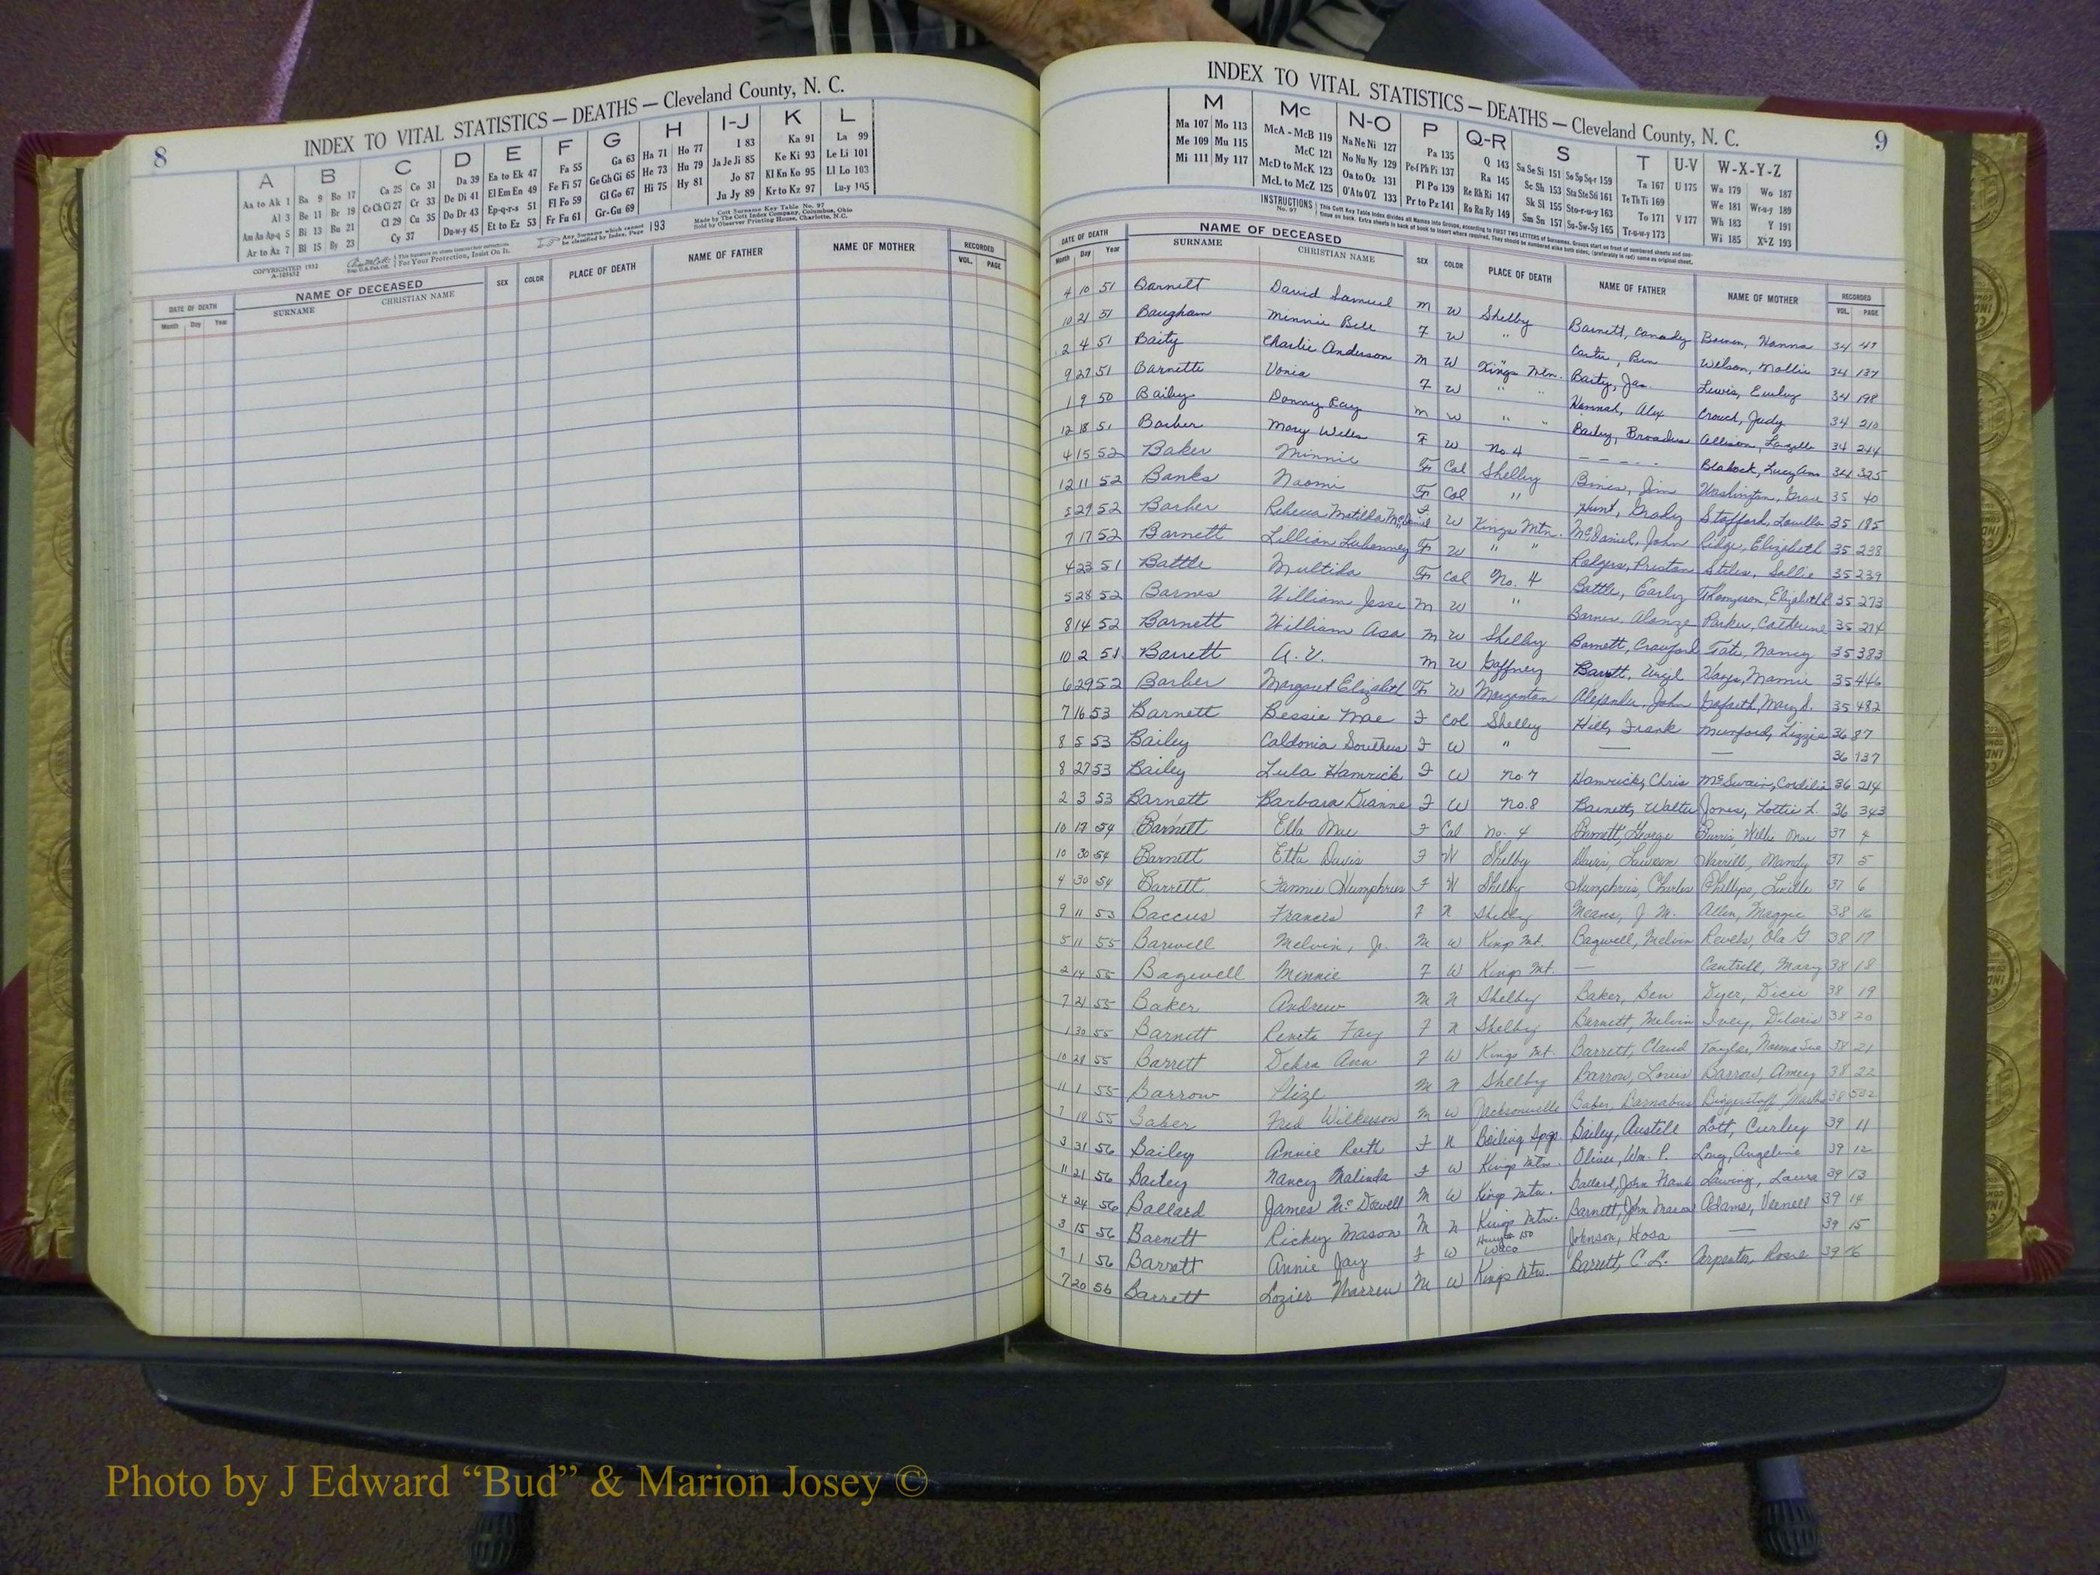 8
INDEX TO VITAL STATISTICS — DEATHS — Cleveland County, N. C.
A B C D E F G H I-J K L
Aa to Ak 1 Ba 9 Bo 17 Ca 25 Co 31 Da 39 Ea to Ek 47 Fa 55 Ga 63 Ha 71 Ho 77 I 83 Ka 91 La 99
Al 3 Be 11 Br 19 Ce Ch Ci 27 Cr 33 De Di 41 El Em En 49 Fe Fi 57 Ge Gh Gi 65 He 73 Hu 79 Ja Je Ji 85 Ke Ki 93 Le Li 101
Am An Ap-q 5 Bi 13 Bu 21 Cl 29 Cu 35 Do Dr 43 Ep-q-r-s 51 Fl Fo 59 Gl Go 67 Hi 75 Hy 81 Jo 87 Kl Kn Ko 95 Ll Lo 103
Ar to Az 7 Bl 15 By 23 Cy 37 Du-w-y 45 Et to Ez 53 Fr Fu 61 Gr-Gu 69 Ju Jy 89 Kr to Kz 97 Lu-y 105
COPYRIGHTED 1932
For Your Protection, Insist On It.
Any Surname which cannot be classified by Index, Page 193
Cott Surname Key Table No. 97
Made by The Cott Index Company, Columbus, Ohio
Sold by Observer Printing House, Charlotte, N.C.
DATE OF DEATH NAME OF DECEASED SEX COLOR PLACE OF DEATH NAME OF FATHER NAME OF MOTHER RECORDED
Month Day Year SURNAME CHRISTIAN NAME VOL. PAGE
INDEX TO VITAL STATISTICS — DEATHS — Cleveland County, N. C.
9
M Mc N-O P Q-R S T U-V W-X-Y-Z
Ma 107 Mo 113 McA - McB 119 Na Ne Ni 127 Pa 135 Q 143 Sa Se Si 151 So Sp Sq-r 159 Ta 167 U 175 Wa 179 Wo 187
Me 109 Mu 115 McC 121 No Nu Ny 129 Pe-f Ph Pi 137 Ra 145 Sc Sh 153 Sta Ste Sti 161 Te Th Ti 169 We 181 Wr-u-y 189
Mi 111 My 117 McD to McK 123 Oa to Oz 131 Pl Po 139 Re Rh Ri 147 Sk Sl 155 Sto-r-u-y 163 To 171 V 177 Wh 183 Y 191
McL to McZ 125 O'A to O'Z 133 Pr to Pz 141 Ro Ru Ry 149 Sm Sn 157 Su-Sw-Sy 165 Tr-u-w-y 173 Wi 185 X-Z 193
INSTRUCTIONS No. 97
This Cott Key Table Index divides all Names into Groups, according to FIRST TWO LETTERS of Surnames. Groups start on front of numbered sheets and con-
tinue on back. Extra sheets in back of book to insert where required. They should be numbered alike both sides, (preferably in red) same as original sheet.
DATE OF DEATH NAME OF DECEASED SEX COLOR PLACE OF DEATH NAME OF FATHER NAME OF MOTHER RECORDED
Month Day Year SURNAME CHRISTIAN NAME VOL. PAGE
4 10 51 Barnett David Samuel M W Shelby Barnett, Hanna 34 47
10 21 51 Baugham Minnie Bell F W " Carter, Ben Wilson, Mollie 34 137
2 4 51 Baity Charlie Anderson M W Kings Mtn. Baity, Jas. Lewis, 34 198
9 27 51 Barnette Vonia F W " " Hannah, Alex Crouch, Judy 34 210
1 9 50 Bailey Donny Ray M W " " Bailey, Broadus Allison, 34 244
12 18 51 Barber Mary Wells F W No. 4 - - - - - Blalock, Lucy Ann 34 325
4 15 52 Baker Minnie F Col Shelby Jim Washington, Grace 35 40
12 11 52 Banks Naomi F Col " Hunt, Grady Stafford, Louella 35 185
5 29 52 Barber Rebecca Matilda McDaniel F W Kings Mtn. McDaniel, John Elizabeth 35 238
7 17 52 Barnett Lillian F W " " Rodgers, Preston Stiles, Sallie 35 239
4 23 51 Battle Multida F Col No. 4 Battle, Early Thompson, Elizabeth 35 273
5 28 52 Barnes William Jesse M W " Barnes, Alonzo Parker, Catherine 35 274
8 14 52 Barnett William Asa M W Shelby Barnett, Crawford Tate, Nancy 35 383
10 2 51 Barrett A. V. M W Gaffney Barrett, Virgil Hays, Mamie 35 446
6 29 52 Barber Margaret Elizabeth F W Morganton Alexander, John Mary S. 35 482
7 16 53 Barnett Bessie Mae F Col Shelby Hill, Frank Munford, Lizzie 36 87
8 5 53 Bailey Caldonia Southers F W " — — 36 137
8 27 53 Bailey Lula Hamrick F W No 7 Hamrick, Chris McSwain, Cordelia 36 214
2 3 53 Barnett Barbara Dianne F W No. 8 Barnett, Walter Jones, Lottie L. 36 343
10 17 54 Barnett Ella Mae F Col No. 4 Barnett, George Mae 37 4
10 30 54 Barnett Etta Davis F W Shelby Davis, Lawson Harrill, Mandy 37 5
4 30 54 Barrett Fannie Humphries F W Shelby Humphries, Charles Phillips, Lucille 37 6
9 11 53 Baccus Frances F N Shelby Means, J. M. Allen, Maggie 38 16
5 11 55 Melvin, Jr. M W Kings Mt. Bagwell, Melvin Revels, Ola G 38 17
2 14 55 Bagwell Minnie F W Kings Mt. — Cantrell, Mary 38 18
7 21 55 Baker Andrew M N Shelby Baker, Ben Dyer, Dicie 38 19
1 30 55 Barnett Reneta Fay F N Shelby Barnett, Melvin Ivey, Deloris 38 20
10 28 55 Barrett Debra Ann F W Kings Mt. Barrett, Claud Taylor, Norma Sue 38 21
11 1 55 Barrow M N Shelby Barrow, Louis Barrow, Amey 38 22
7 18 55 Baber Fred Wilkerson M W Jacksonville Baber, Barnabus Biggerstaff, 38 532
3 31 56 Bailey Annie Ruth F N Boiling Spgs. Bailey, Austell Lott, Curley 39 11
11 21 56 Bailey Nancy Malinda F W Kings Mtn. Oliver, Wm. P. Long, Angeline 39 12
4 24 56 Ballard James McDowell M W Kings Mtn. Ballard, John Frank Lawing, Laura 39 13
3 15 56 Barnett Rickey Mason M N Kings Mtn. Barnett, John Mason Adams, Vernell 39 14
7 1 56 Barrett Annie Jay F W Waco Johnson, Hosa — 39 15
7 20 56 Barrett Lozier Warren M W Kings Mtn. Barrett, C. L. Carpenter, Rosie 39 16
Photo by J Edward “Bud” & Marion Josey ©